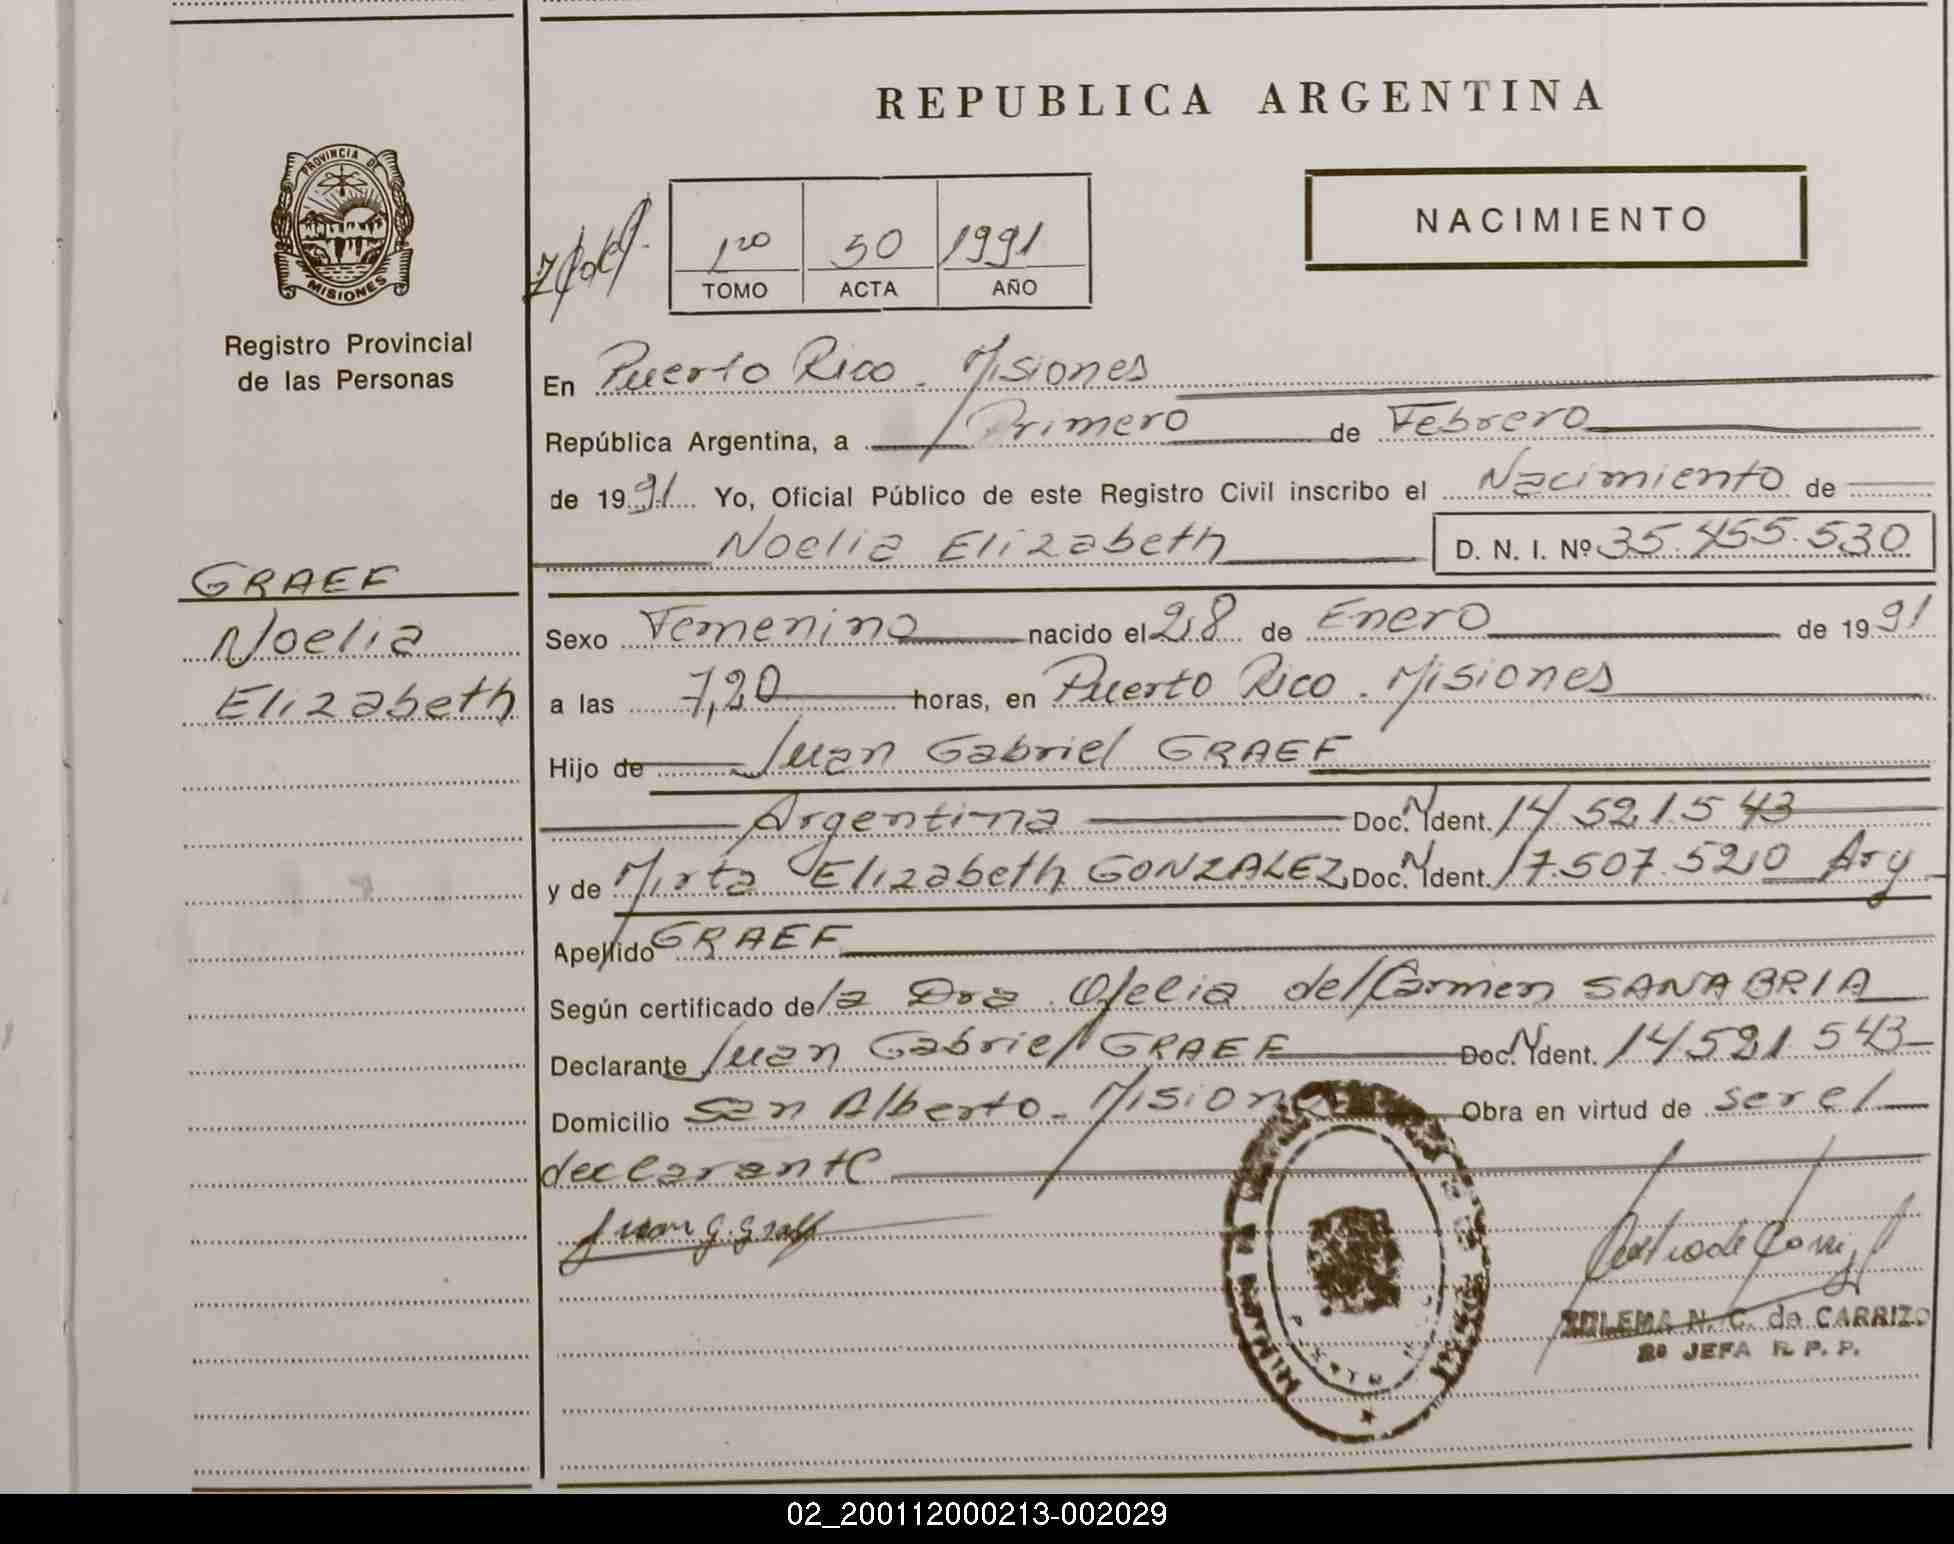 REPUBLICA ARGENTINA
PROVINCIA DE
MISIONES
Registro Provincial
de las Personas
NACIMIENTO
1ro 50 1991
TOMO ACTA AÑO
En Puerto Rico. Misiones
República Argentina, a Primero de Febrero
de 1991 Yo, Oficial Público de este Registro Civil inscribo el Nacimiento de
Noelia Elizabeth D. N. I. Nº 35.455.530
GRAEF
Noelia
Elizabeth
Sexo Femenino nacido el 28 de Enero de 1991
a las 7,20 horas, en Puerto Rico. Misiones
Hijo de Juan Gabriel GRAEF
Argentina Doc. N Ident. 14.521.543
y de Mirta Elizabeth GONZALEZ Doc. N Ident. 17.507.520 Arg
Apellido GRAEF
Según certificado de la Dra. Ofelia del Carmen SANABRIA
Declarante Juan Gabriel GRAEF Doc. N Ident. 14.521.543
Domicilio San Alberto - Misiones Obra en virtud de ser el
declarante
Juan G. Graef
ZULEMA N. C. de CARRIZO
2º JEFA R. P. P.
02_200112000213-002029